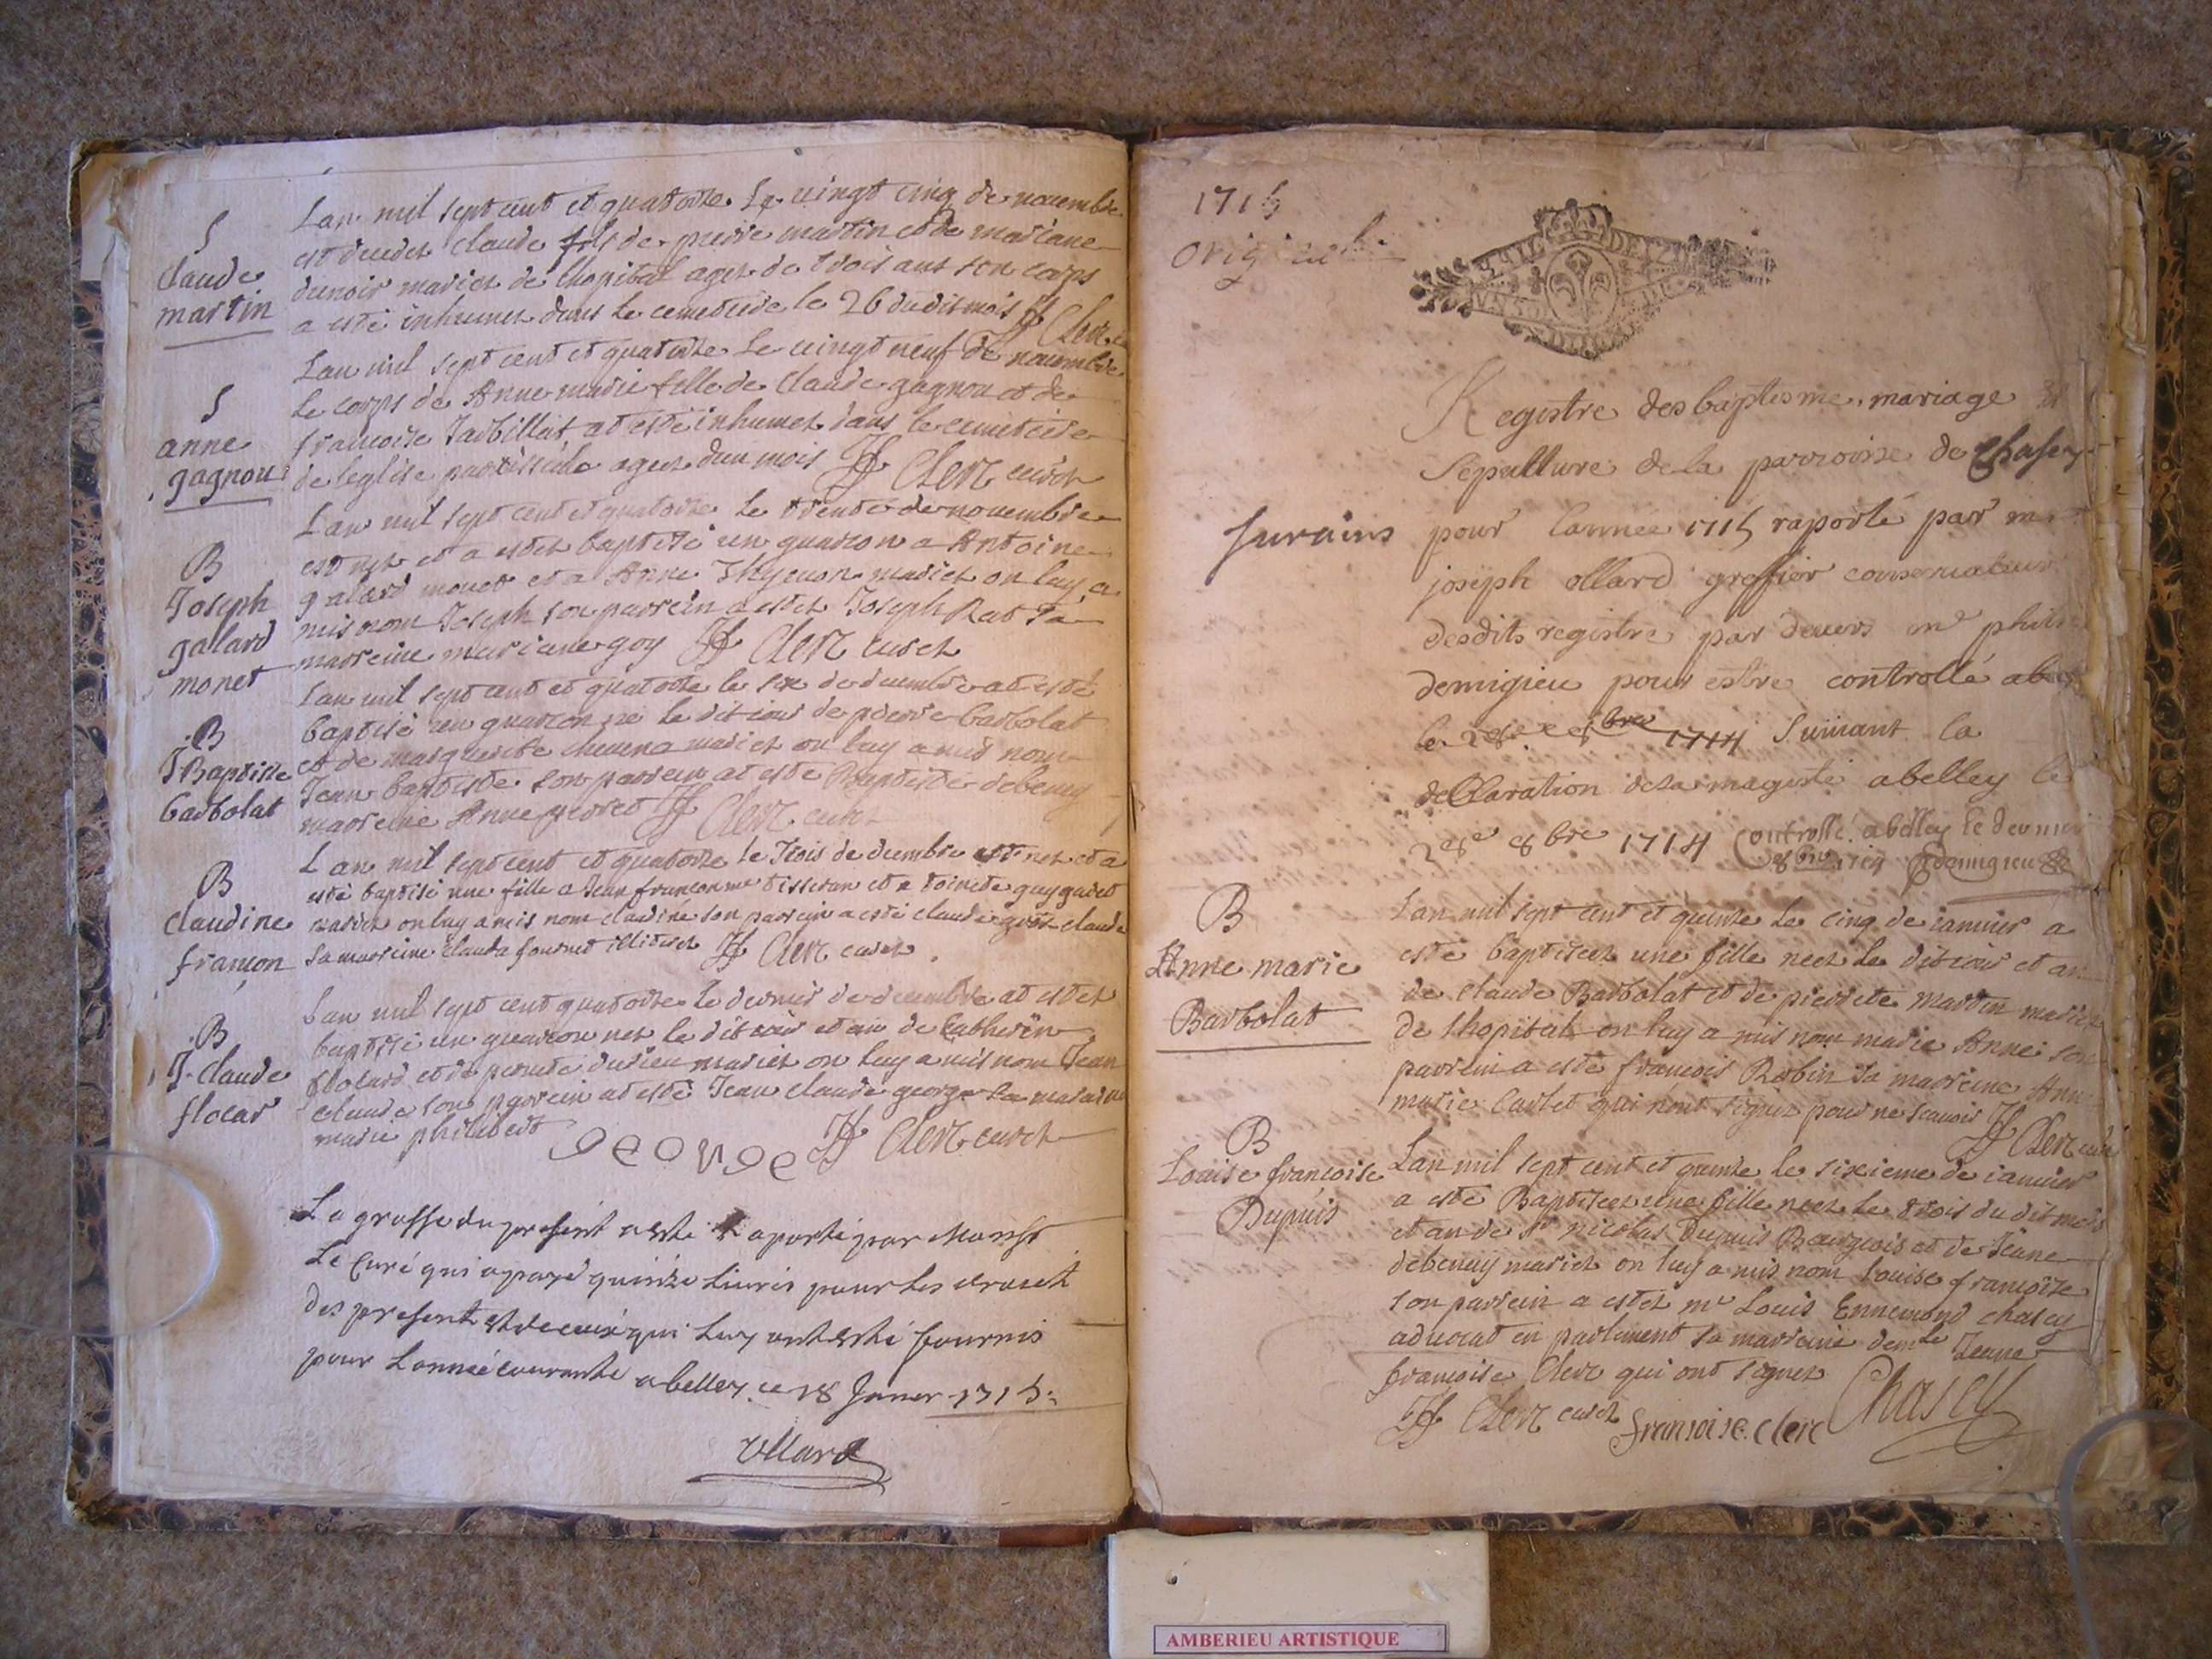 S
Claude
martin
Lan mil sept cent et quatorze Le vingt cinq de novembre
est decedet claude fils de pierre martin et de mariane
dunoir mariet de lhopital aget de trois ans son corps
a esté inhumet dans le cemetiere le 26 du dit mois Clerc
S
anne
gagnou
Lan mil sept cent et quatorze Le vingt neuf de novembre
le corps de Anne marie fille de Claude gagnou et de
francoise at esté inhumet dans le cimetiere
de leglise aget dun mois Clerc curet
B
Joseph
galard
monet
Lan mil sept cent et quatorze le trente de novembre
est net et a estet baptisé un guarcon a Antoine
galard monet et a Anne mariet on luy a
mis nom Joseph son parrein a estet Joseph Rat sa
marreine mariane goy Clerc curet
B
J Baptiste
barbolat
Lan mil sept cent et quatorze le six de decembre at esté
baptisé un guarcon né le dit iour de pierre barbolat
et de marguerite mariet on luy a mis nom
Jean baptiste son parrein at esté Baptiste debeney
marreine Anne Clerc curet
B
Claudine
françon
Lan mil sept cent et quatorze le trois de decembre est net et a
esté baptisé une fille a Jean françon tisseran et a toinete
mariet on luy a mis nom claudine son parrein a esté claude claude
sa marreine Clauda Clerc curet
B
J. Claude
flocar
Lan mil sept cent quatorze le dernier de decembre at estet
baptisé un guarcon net le dit iour et an de
flocard et de mariet on luy a mis nom Jean
claude son parrein at esté Jean claude george sa marreine
marie philibert
george Clerc curet
La grosse du present a esté aporté par Monsr
Le Curé qui a payé quinze Livres pour les droict
des present et de ceux qui luy ont esté fournis
pour Lannée courante a belley ce 18 Janver 1715
Ollard
1715
Original
Registre des baptesme, mariage
Sepulture de la parroisse de Chasey
pour lannée 1715 raporté par
joseph ollard greffier conservateur
desdits registre par devers me
demigieu pour estre controllé
le 28e 8bre 1714 Suivant la
declaration de sa magesté a belley le
28e 8bre 1714 Controllé a belley le dernier
8bre 1714 Demigieu
B
Anne marie
Barbolat
Lan mil sept cent et quinze Le cinq de ianvier a
esté baptiseet une fille neet le dit iour et an
de Claude Barbolat et de pierrete Martin mariet
de lhopital on luy a mis nom marie Anne son
parrein a esté francois Robin sa marreine Anne
marie qui nont signet pour ne scavoir Clerc curé
B
Louise francoise
Dupuis
Lan mil sept cent et quinze le sixieme de ianvier
a esté Baptiseet une fille neet le trois du dit mois
et an de Sr nicolas Dupuis Bourgeois et de Jeane
debeney mariet on luy a mis nom louise francoise
son parrein a estet mr Louis Ennemond chasey
advocat en parlement sa marreine demlle Jeane
francoise Clerc qui ont signet
Clerc curet francoise Clerc Chasey
AMBERIEU ARTISTIQUE